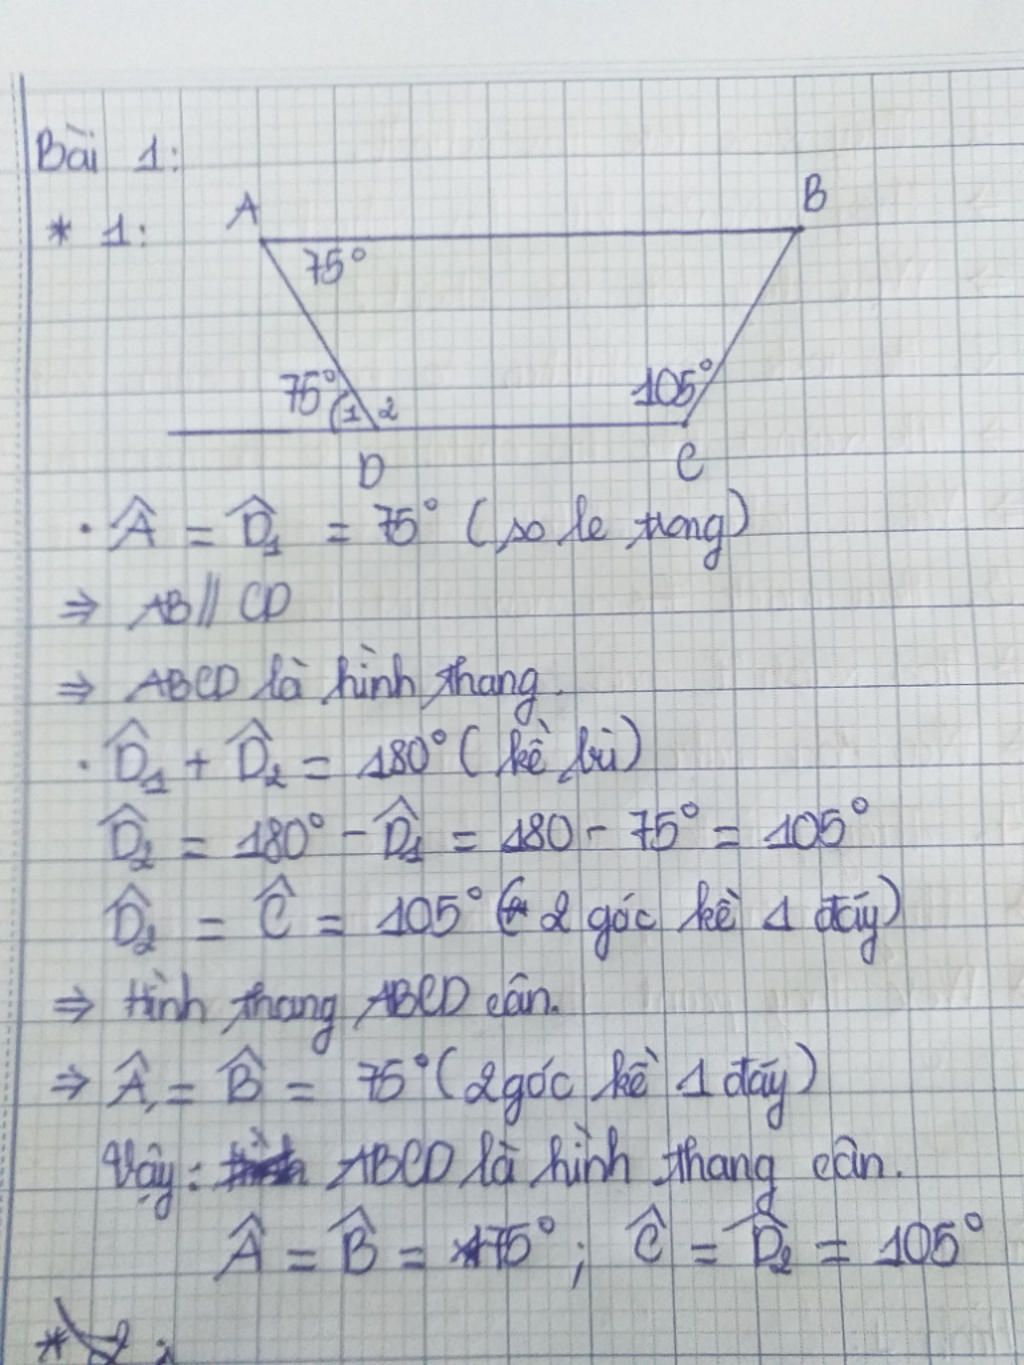 Bài 1:
* 1:
A
B
75°
75°
1
2
105°
D
C
· Â = D̂₁ = 75° (so le trong)
⇒ AB // CD
⇒ ABCD là hình thang.
· D̂₁ + D̂₂ = 180° (kề bù)
D̂₂ = 180° - D̂₁ = 180 - 75° = 105°
D̂₂ = Ĉ = 105° (2 góc kề 1 đáy)
⇒ Hình thang ABCD cân.
⇒ Â, = B̂ = 75° (2 góc kề 1 đáy)
Vậy: ABCD là hình thang cân.
Â = B̂ = 75° ; Ĉ = D̂₂ = 105°
* 2: